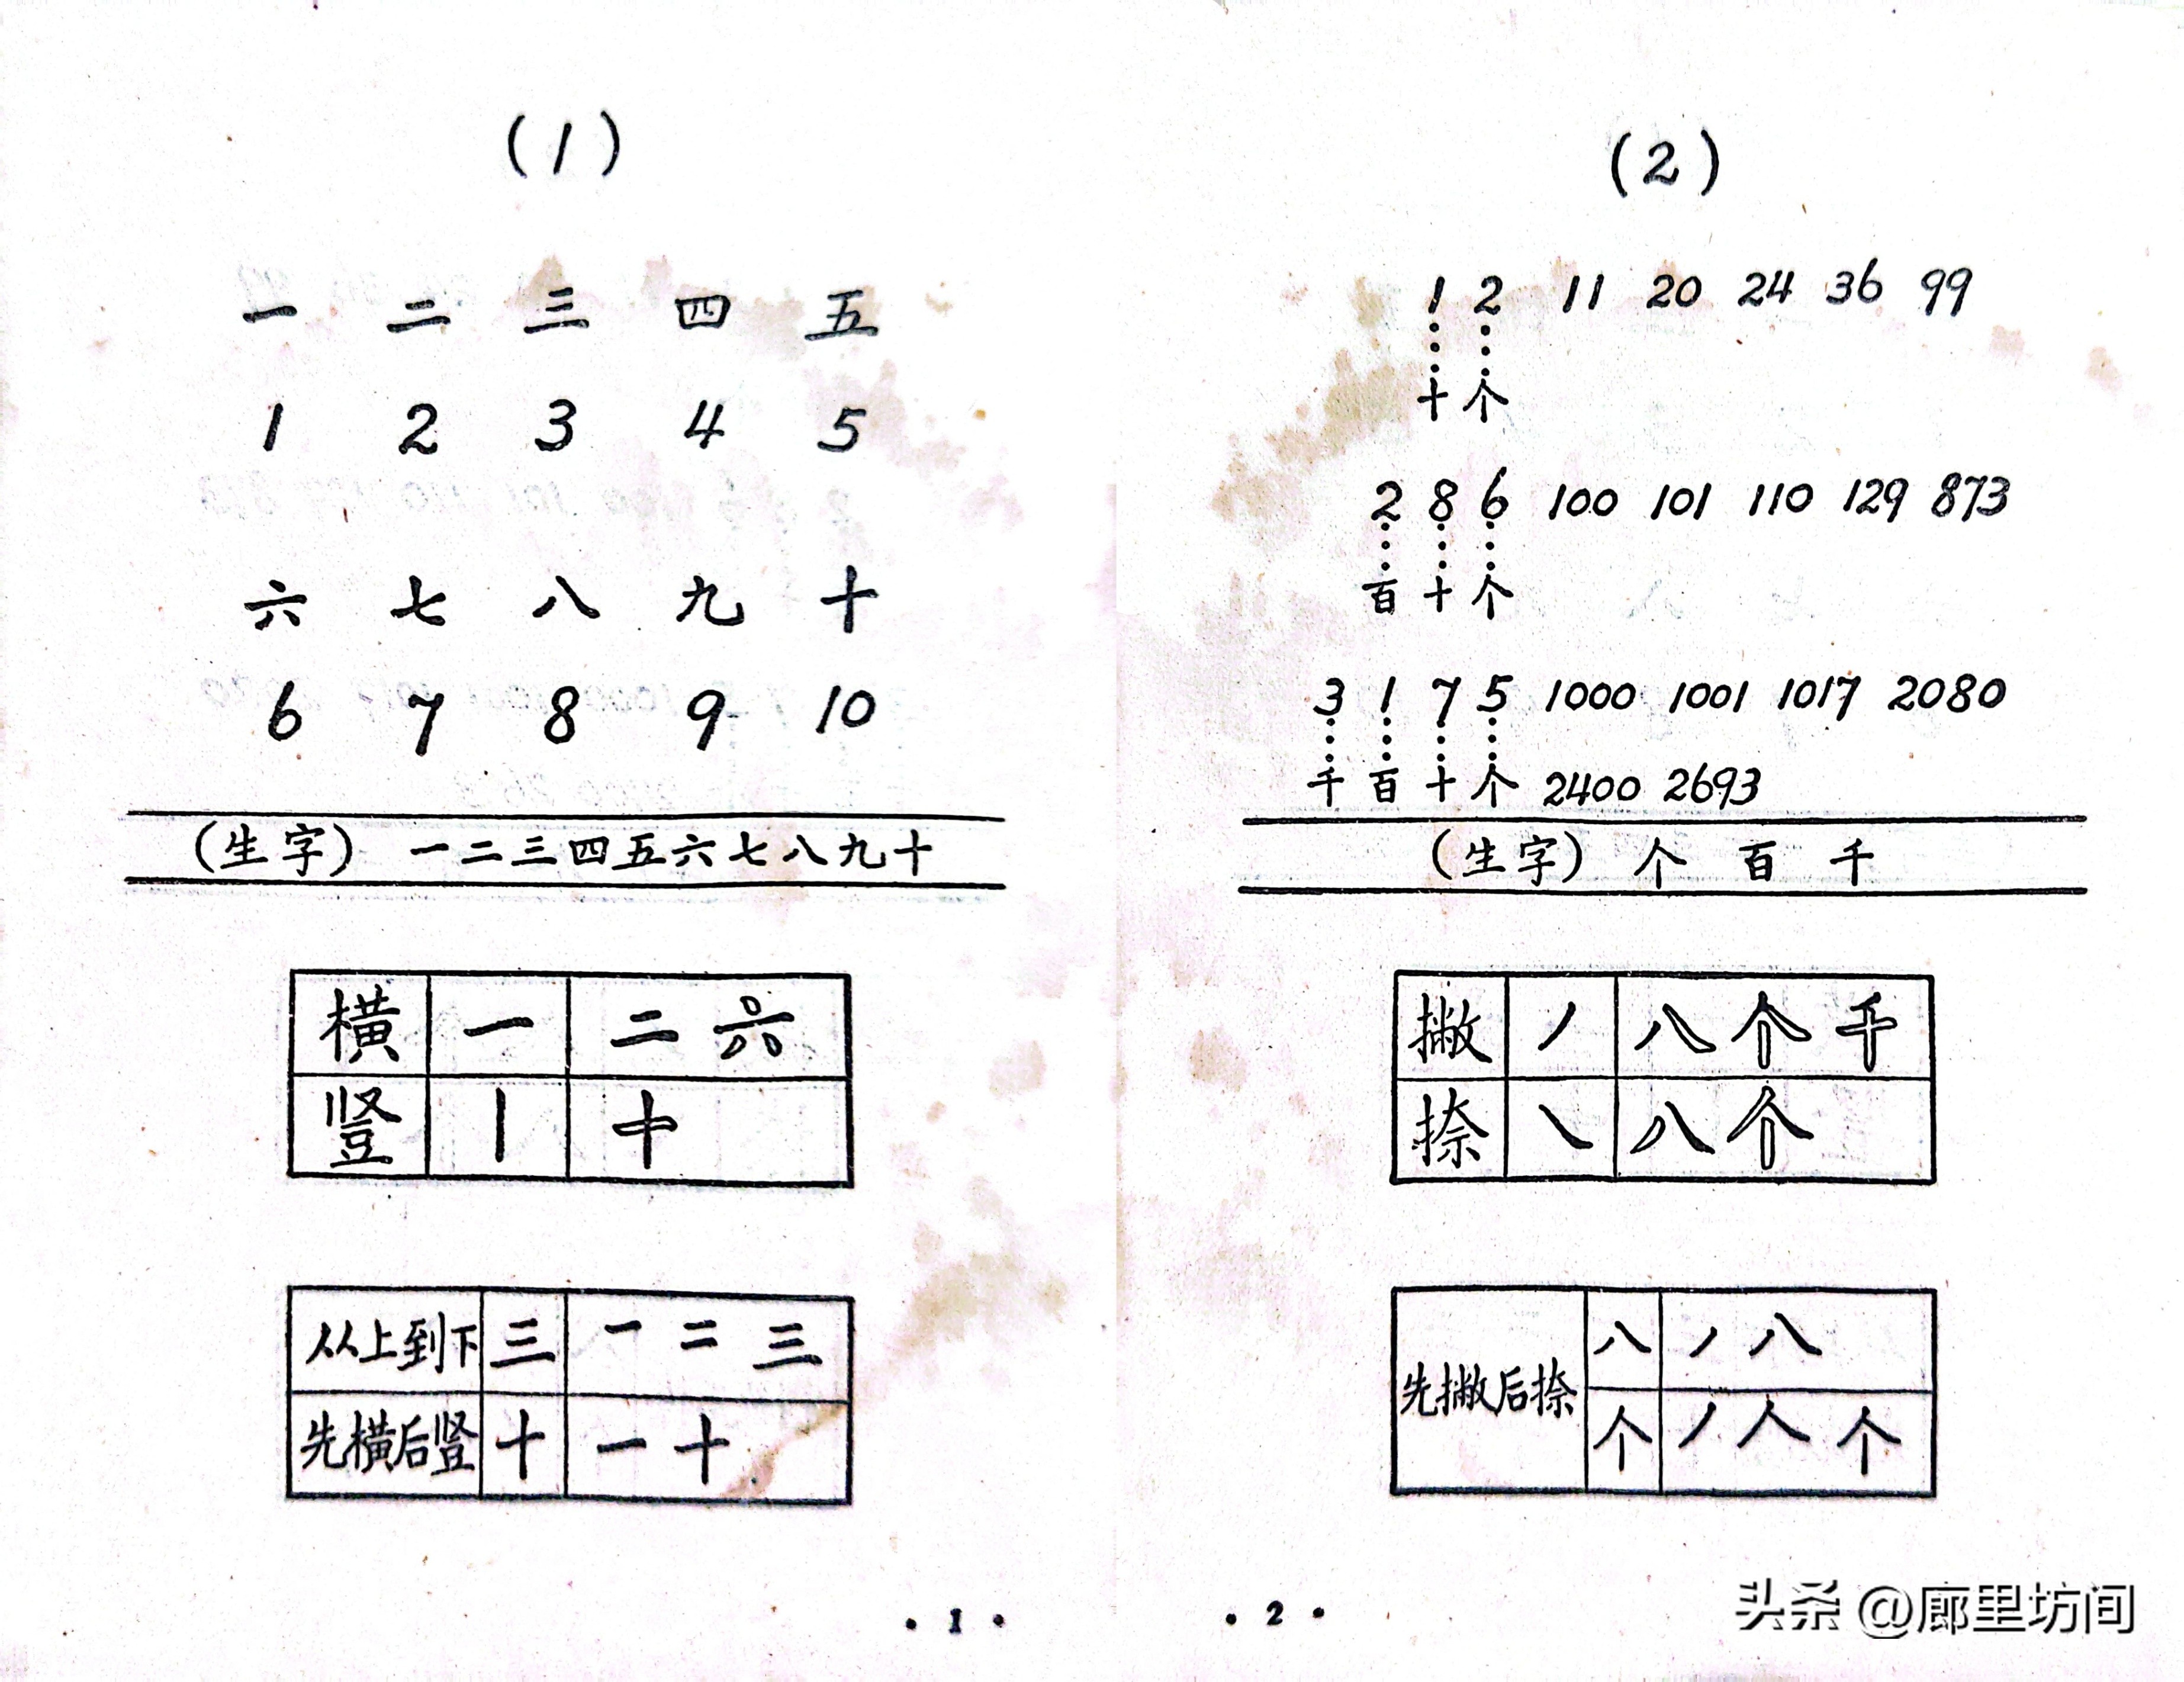 (1)
一 二 三 四 五
1 2 3 4 5
六 七 八 九 十
6 7 8 9 10
(生字) 一二三四五六七八九十
横 一 二 六
竖 丨 十
从上到下 三 一 二 三
先横后竖 十 一 十
· 1 ·
(2)
1 2 11 20 24 36 99
十 个
2 8 6 100 101 110 129 873
百 十 个
3 1 7 5 1000 1001 1017 2080
千 百 十 个 2400 2693
(生字) 个 百 千
撇 丿 八 个 千
捺 ㇏ 八 个
先撇后捺 八 丿 八
个 丿 人 个
· 2 ·
头条 @廊里坊间